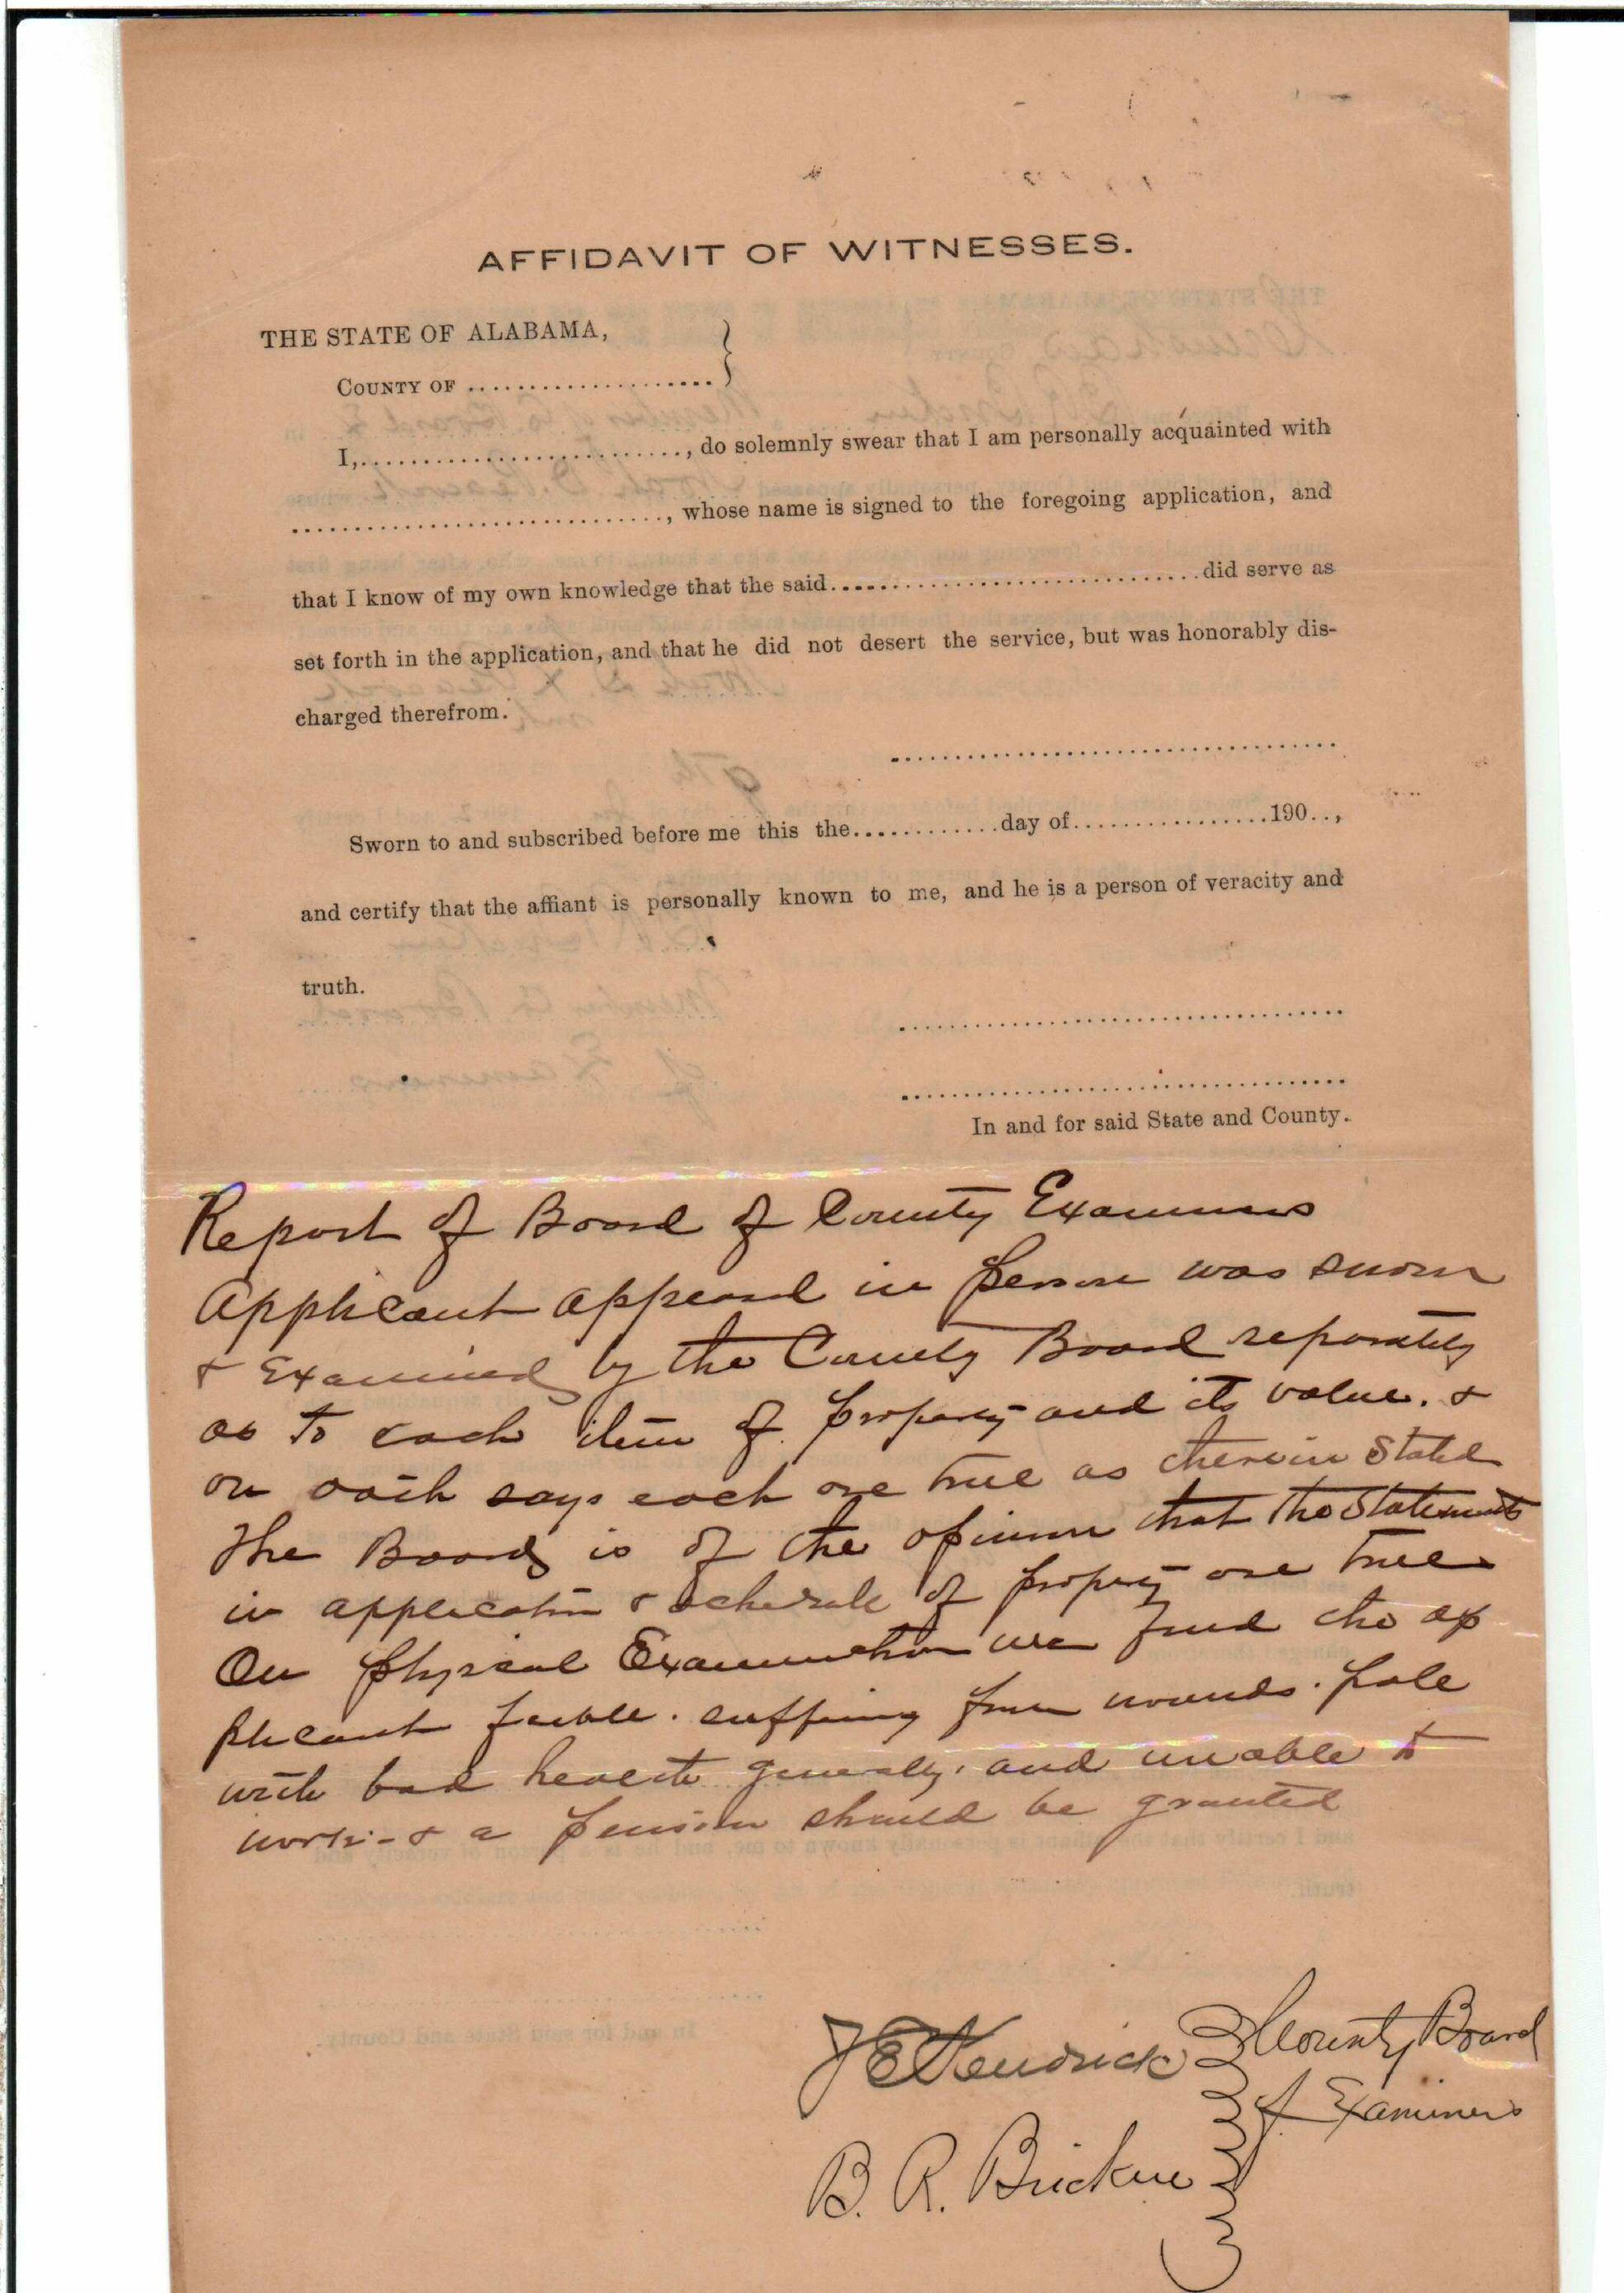 AFFIDAVIT OF WITNESSES.
THE STATE OF ALABAMA,
COUNTY OF .................... }
I,.........................., do solemnly swear that I am personally acquainted with
.............................., whose name is signed to the foregoing application, and
that I know of my own knowledge that the said..............................did serve as
set forth in the application, and that he did not desert the service, but was honorably dis-
charged therefrom.
....................................
Sworn to and subscribed before me this the............day of................190..,
and certify that the affiant is personally known to me, and he is a person of veracity and
truth.
....................................
....................................
In and for said State and County.
Report of Board of County Examiners
Applicant appeared in person was sworn
& Examined by the County Board separately
as to each item of property and its value. &
on oath says each are true as therein Stated
The Board is of the opinion that the Statements
in application & schedule of property are true
On physical Examination we find the ap
plicant feeble. suffering from wounds. pale
with bad health generaly, and unable to
work - & a pension should be granted
J E Kendrick County Board
of Examiners
B. R. Bricken